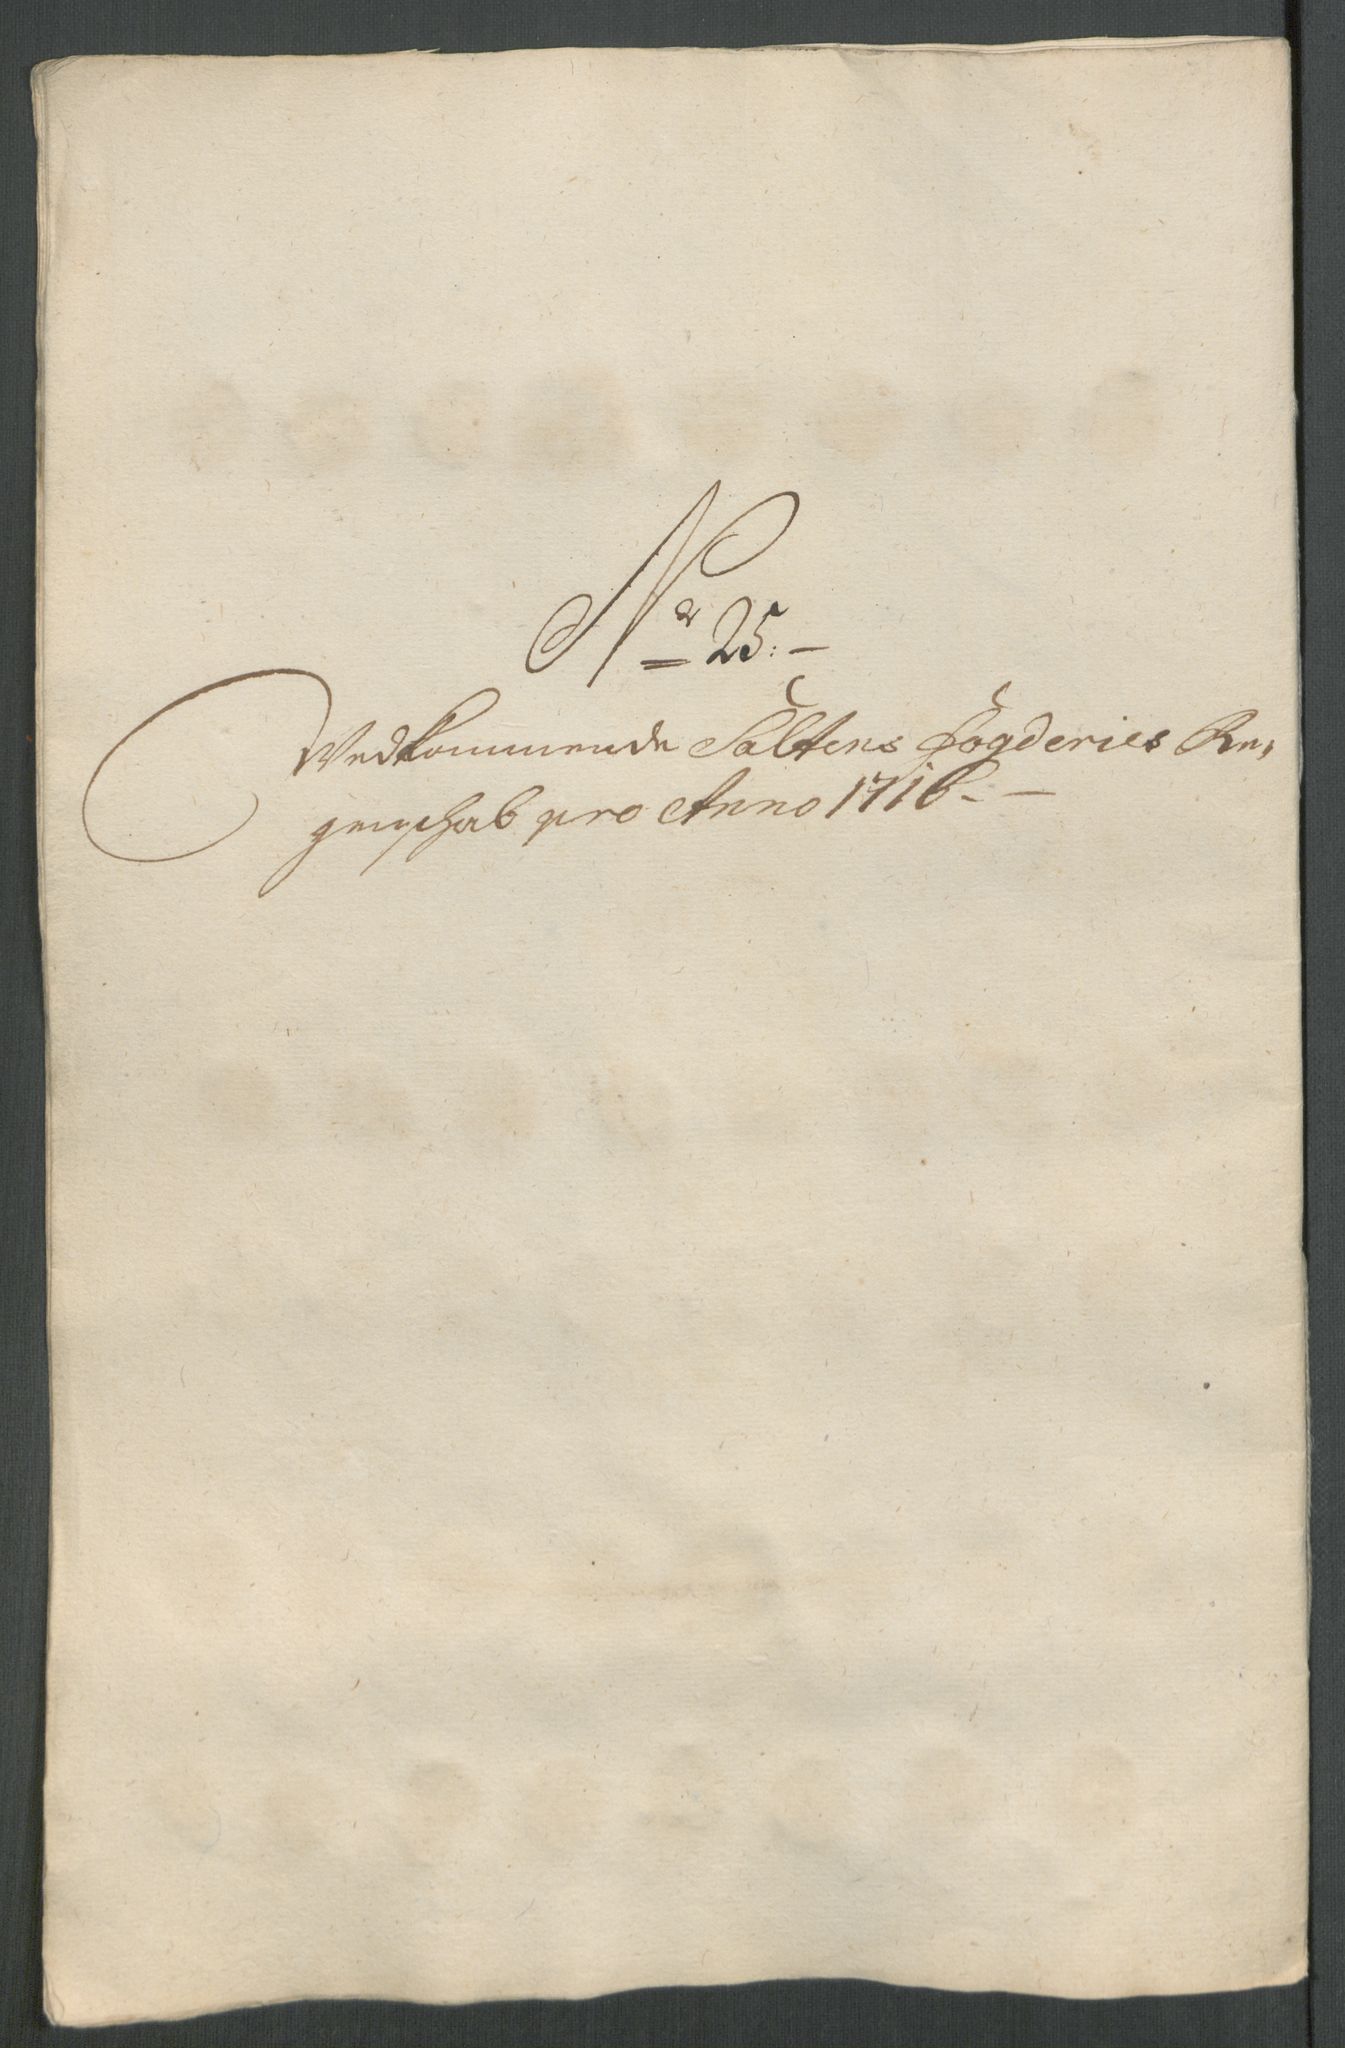 Nr 25.-
Vedkommende Saltens Fogderies Re,
genschab pro Anno 1716.-